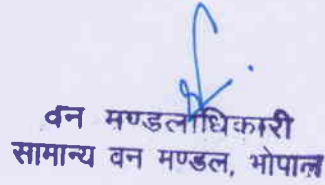 वन मण्डलाधिकारी
सामान्य वन मण्डल, भोपाल